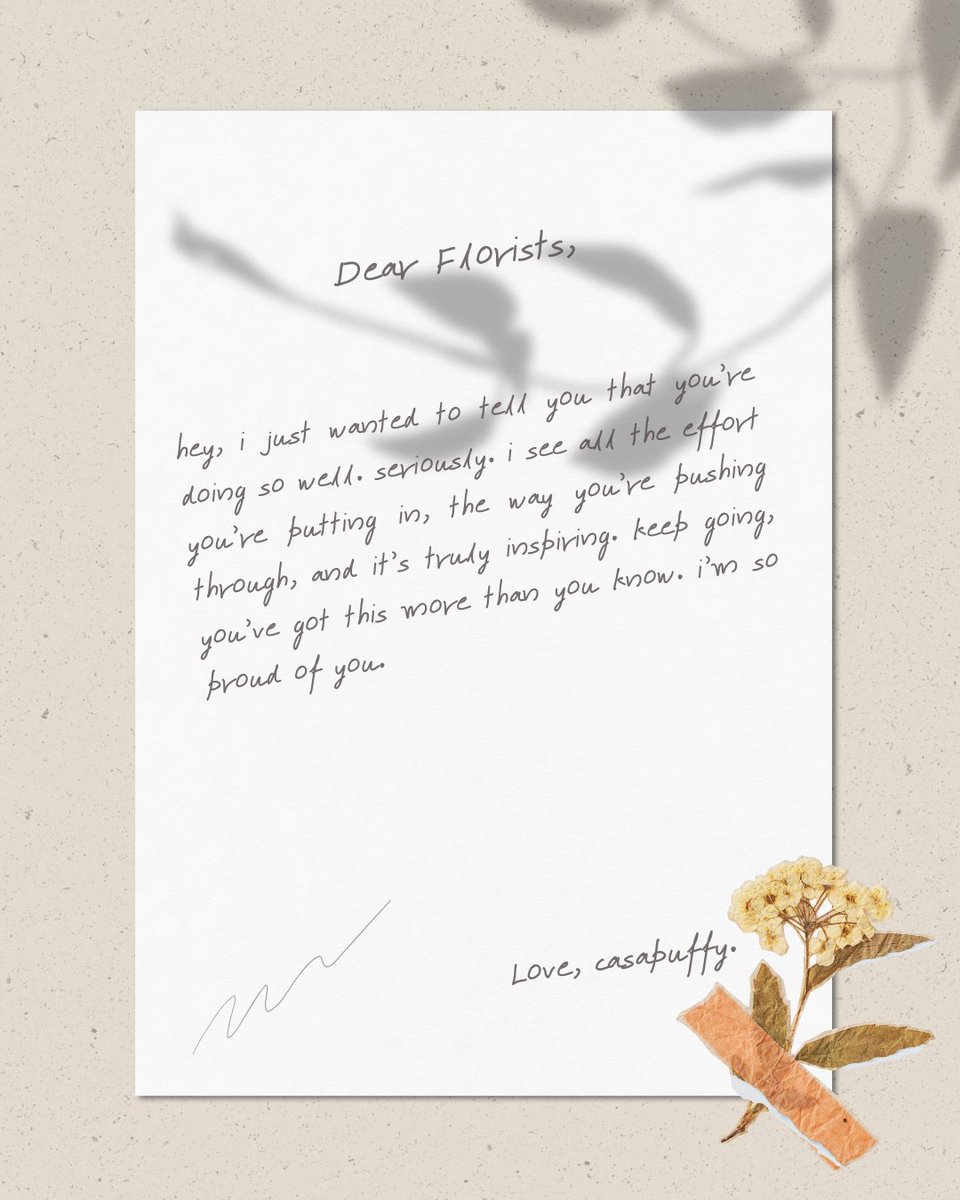 Dear Florists,
hey, i just wanted to tell you that you're
doing so well. seriously. i see all the effort
you're putting in, the way you're pushing
through, and it's truly inspiring. keep going,
you've got this more than you know. i'm so
proud of you.
Love, casapuffy.